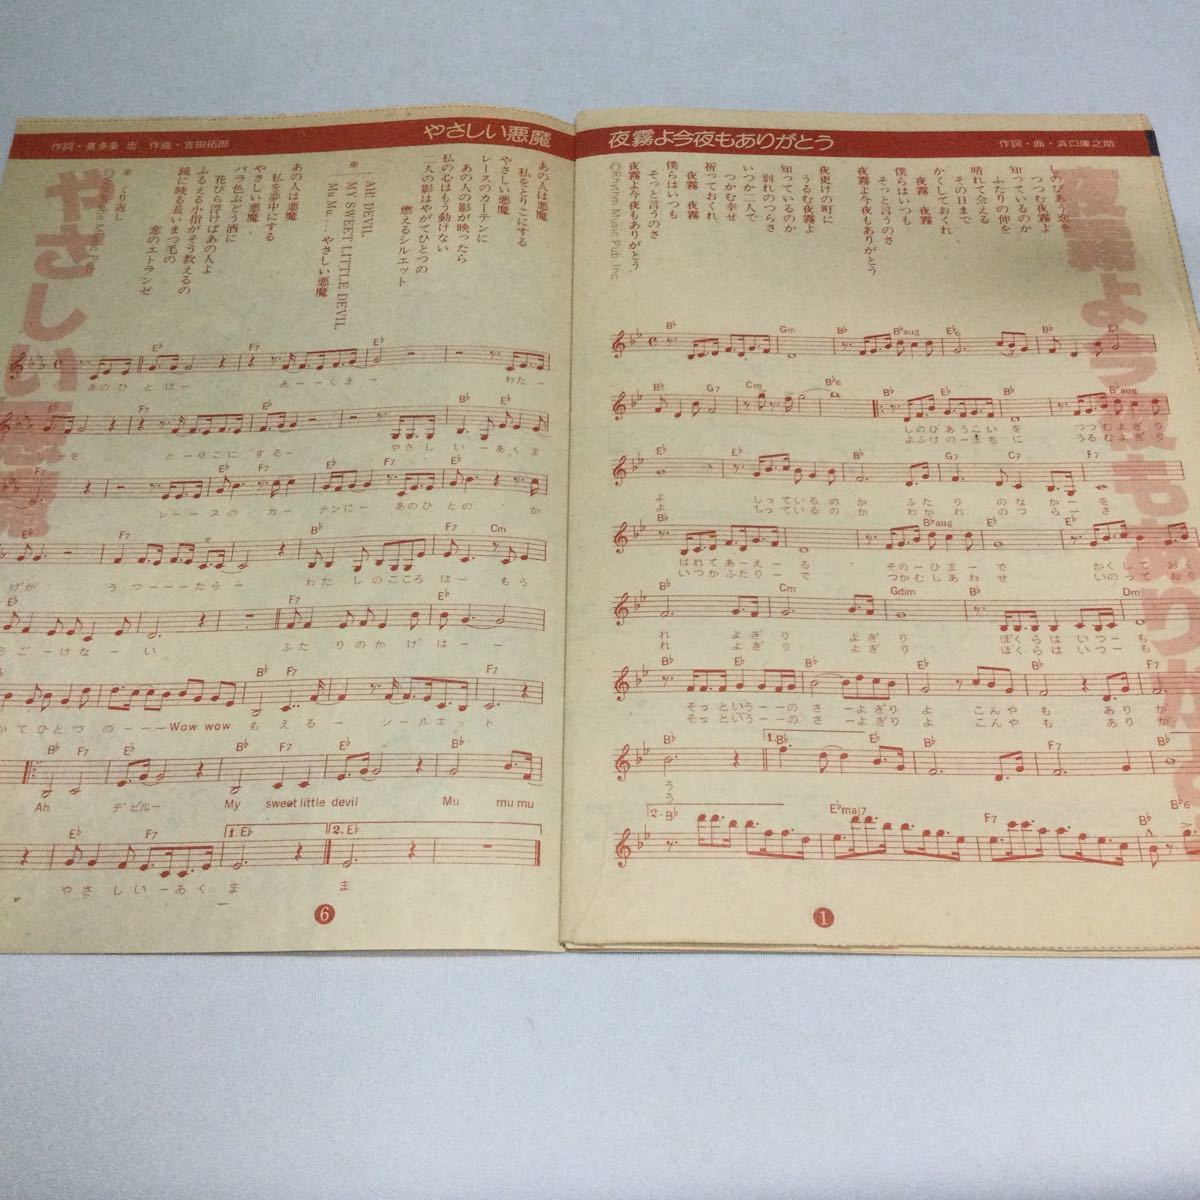 やさしい悪魔
作詞・喜多条 忠 作曲・吉田拓郎
やさしい悪魔
あの人は悪魔
私をとりこにする
やさしい悪魔
レースのカーテンに
あの人の影が映ったら
私の心はもう動けない
二人の影はやがてひとつの
燃えるシルエット
※
AH DEVIL
MY SWEET LITTLE DEVIL
Mu Mu… やさしい悪魔
あの人は悪魔
私を夢中にする
やさしい悪魔
バラ色ぶどう酒に
花びら浮けばあの人よ
ふるえる小指がそう教えるの
鏡に映る長いまつ毛の
恋のエトランゼ
※ くり返し
あのひとはー あーーくまー わたー
とーりこに するー やさしいーあくま
レーースの カーテンにー あのひとの か
げが うつーーーたらー わたしのこころ はー もう
うごーけなーい ふたりのかげ はーー
がてひとつ のーーーWow wow もえるー シールエット
Ah デビルー My sweet little devil Mu mu mu
やさしいーあく ま ま
6
夜霧よ今夜もありがとう
作詞・曲・浜口庫之助
夜霧よ今夜もありがとう
しのびあう恋を
つつむ夜霧よ
知っているのか
ふたりの仲を
晴れて会える
その日まで
かくしておくれ
夜霧 夜霧
僕らはいつも
そっと言うのさ
夜霧よ今夜もありがとう
夜更けの町に
うるむ夜霧よ
知っているのか
別れのつらさ
いつか二人で
つかむ幸せ
祈っておくれ
夜霧 夜霧
僕らはいつも
そっと言うのさ
夜霧よ今夜もありがとう
©Rhythm Music Pub Inc
しのびあうこいを つつむよぎり
よふけのーまちに うるむよぎり
よ しっているのか ふたりのなかーを
よ しっているのか わかれのつらーさ
はれてあーえーる そのーひまーで かくしておく
いつかふたりーで つかむしあわせ いのっておく
れ よぎり よぎり ぼくらはいつーも
れ よぎり よぎり ぼくらはいつーも
そっというーーのさーよぎりよ こんやもありが
そっというーーのさーよぎりよ こんやもありが
とう
とう
1